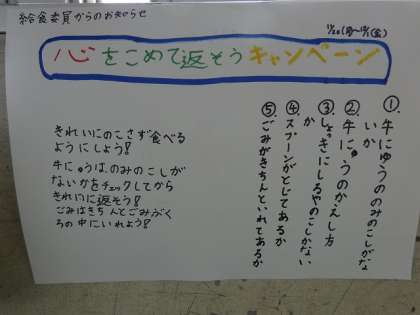 給食委員からのお知らせ
11/20(月)~12/1(金)
心をこめて返そうキャンペーン
①.牛にゅうののみのこしがな
いか
②.牛にゅうのかえし方
③.しょっきにしるやのこしがない
か
④.スプーンがとじてあるか
⑤.ごみがきちんといれてあるか
きれいにのこさず食べる
ようにしよう!
牛にゅうは、のみのこしが
ないかをチェックしてから
きれいに返そう!
ごみはきちんとごみぶく
ろの中にいれよう!